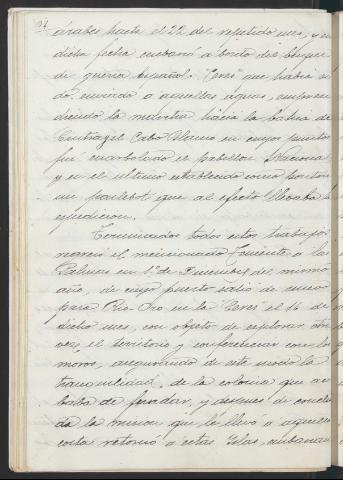 24
árabes hasta el 22 del repetido mes, y en
dicha fecha embarcó a bordo del buque
de guerra Español "Ceres" que habia si-
do enviado a aquellas aguas, empren-
diendo la marcha hacia la bahia de
Cintra y el Cabo Blanco en cuyos puntos
fué enarbolado el pabellon Nacional
y en el ultimo establecido como ponton
un pailebot que al efecto llevaba la
espedicion.
Terminados todos estos trabajos
regresó el mencionado Teniente a las
Palmas en 1º de Diciembre del mismo
año, de cuyo puerto salió de nuevo
para Rio-Oro en la "Ceres" el 16 de
dicho mes, con objeto de explorar otra
vez el territorio y conferenciar con los
moros, asegurando de este modo la
tranquilidad de la colonia que aca-
baba de fundar, y despues de conclui-
da la mision que le llevó a aquella
costa retornó a estas Islas, embarcan-